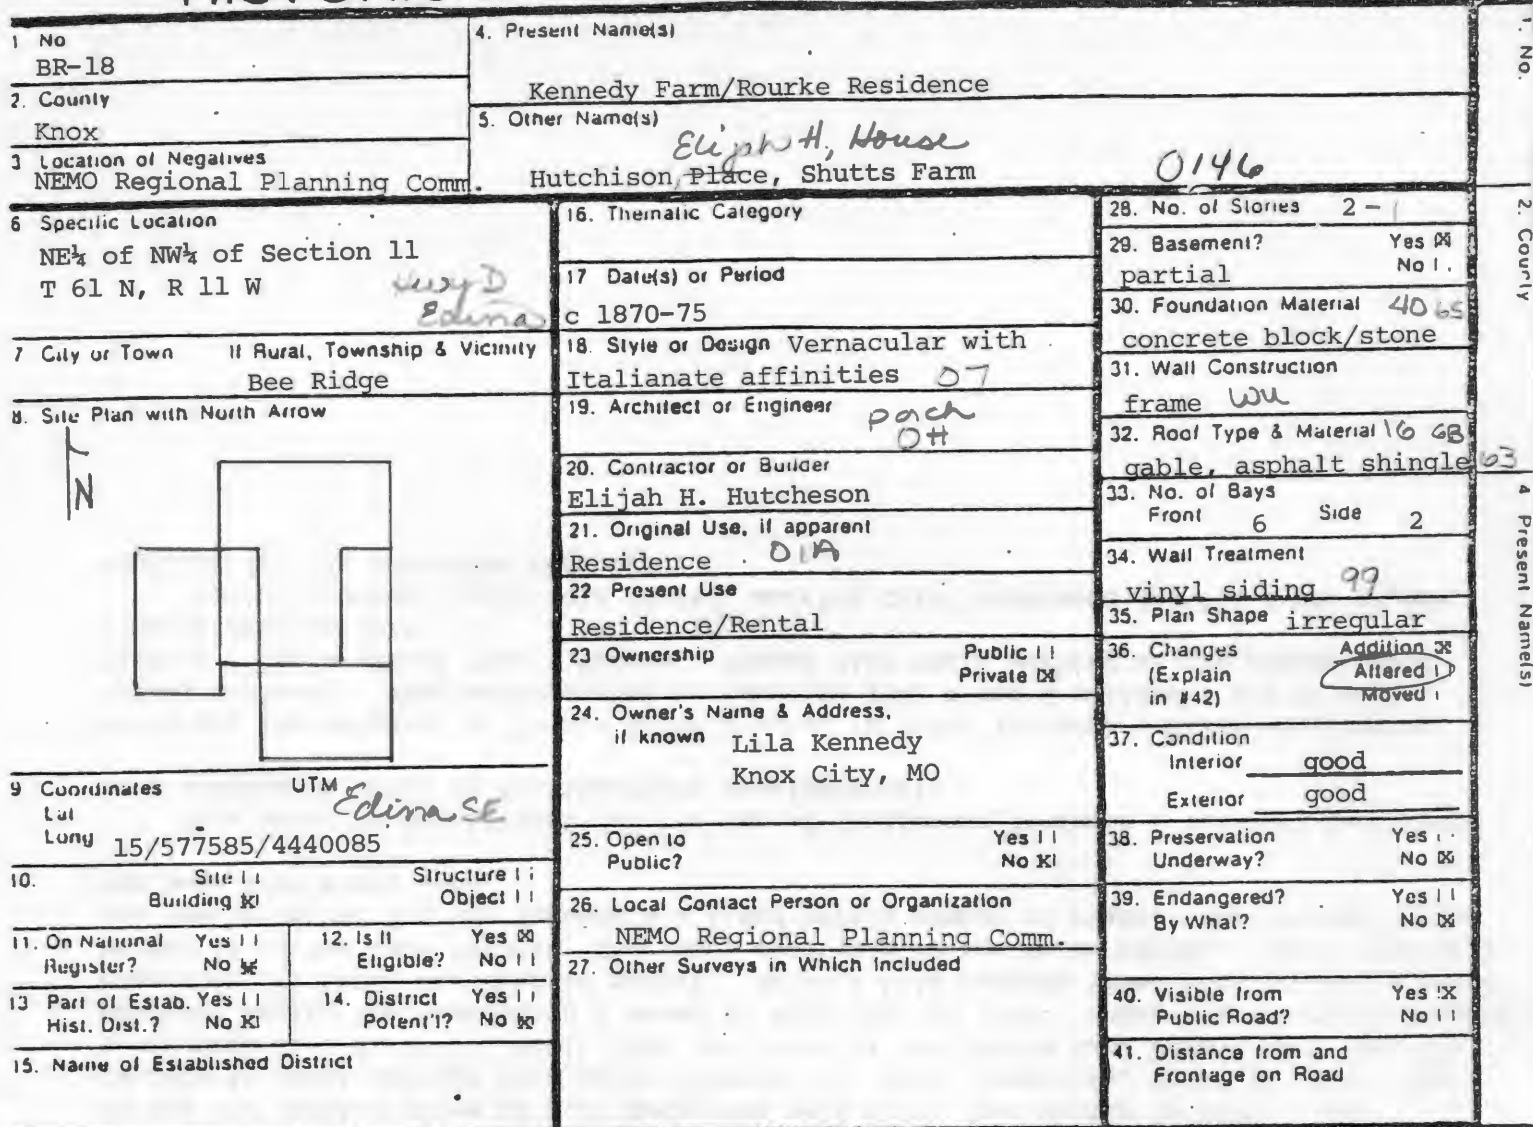 HISTORIC
1 No
BR-18
2. County
Knox
3 Location of Negatives
NEMO Regional Planning Comm.
4. Present Name(s)
Kennedy Farm/Rourke Residence
5. Other Name(s)
Elijah H. House
Hutchison, Place, Shutts Farm
0146
6 Specific Location
NE¼ of NW¼ of Section 11
T 61 N, R 11 W
Edina
7 City or Town If Rural, Township & Vicinity
Bee Ridge
8. Site Plan with North Arrow
N
9 Coordinates UTM
Lat
Long 15/577585/4440085
Edina SE
10. Site Structure
Building Object
11. On National Register? Yes No
12. Is It Eligible? Yes No
13 Part of Estab. Hist. Dist.? Yes No
14. District Potent'l? Yes No
15. Name of Established District
16. Thematic Category
17 Date(s) or Period
c 1870-75
18. Style or Design Vernacular with
Italianate affinities 07
19. Architect or Engineer
porch
OH
20. Contractor or Builder
Elijah H. Hutcheson
21. Original Use, if apparent
Residence 01A
22 Present Use
Residence/Rental
23 Ownership Public
Private
24. Owner's Name & Address,
if known Lila Kennedy
Knox City, MO
25. Open to Yes
Public? No
26. Local Contact Person or Organization
NEMO Regional Planning Comm.
27. Other Surveys in Which Included
28. No. of Stories 2-1
29. Basement? Yes
partial No
30. Foundation Material 40 65
concrete block/stone
31. Wall Construction
frame WU
32. Roof Type & Material 16 GB
gable, asphalt shingle 63
33. No. of Bays
Front 6 Side 2
34. Wall Treatment
vinyl siding 99
35. Plan Shape irregular
36. Changes Addition
(Explain Altered
in #42) Moved
37. Condition
Interior good
Exterior good
38. Preservation Yes
Underway? No
39. Endangered? Yes
By What? No
40. Visible from Yes
Public Road? No
41. Distance from and
Frontage on Road
1. No.
2. County
4 Present Name(s)